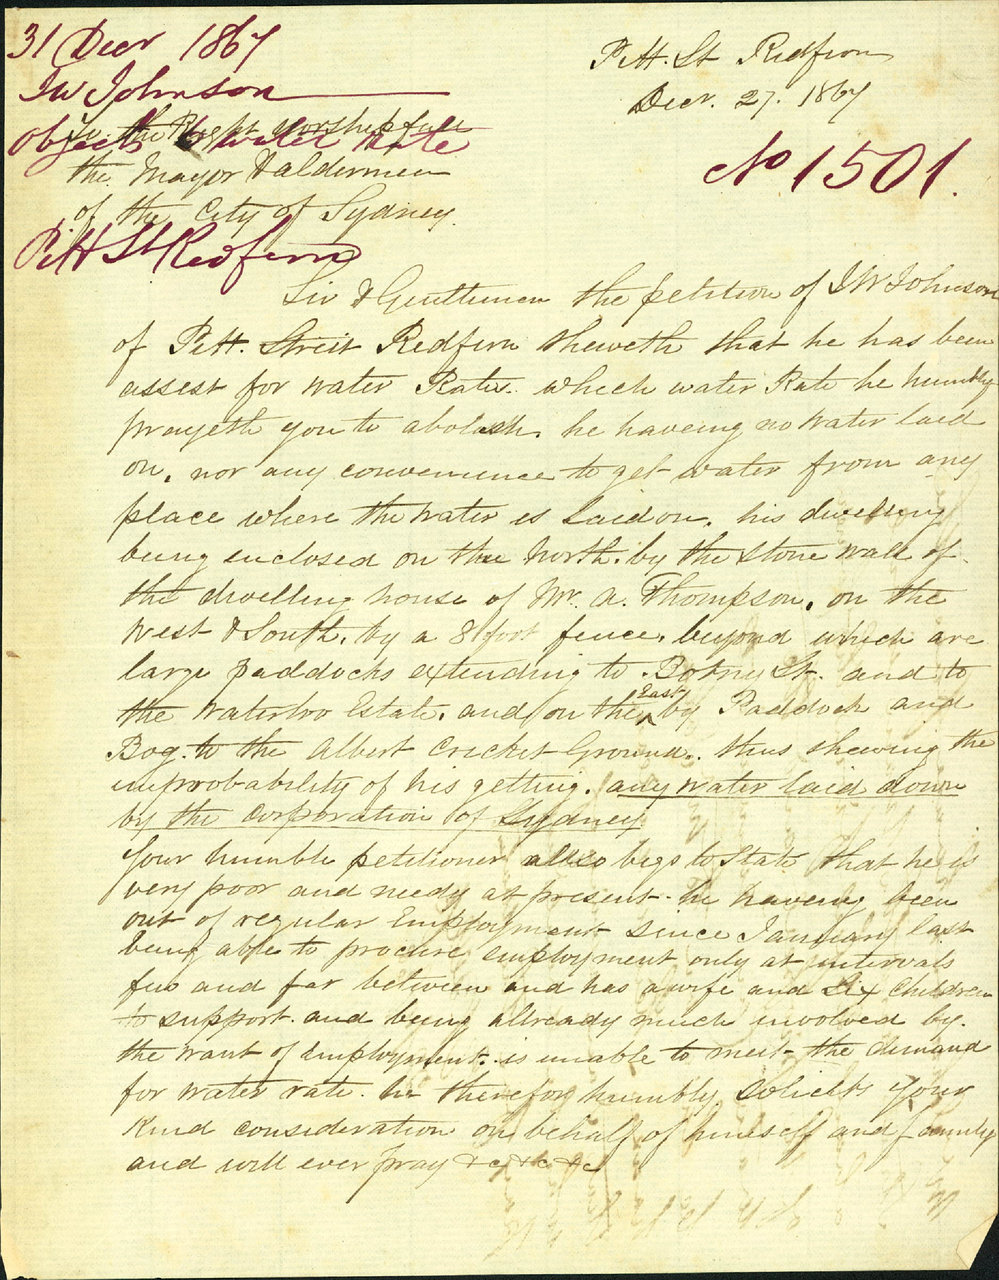 31 Decr 1867
JW Johnson
Objects to water rate
Pitt St Redfern
Pitt. St Redfern
Decr. 27. 1867
No 1501.
To the Right Worshipfull
the Mayor & aldermen
of the City of Sydney.
Sir & Gentlemen the petition of J W Johnson
of Pitt. Street Redfern sheweth that he has been
assest for water Rates. which water Rate he humbly
prayeth you to abolish. he haveing no water laid
on. nor any convenience to get water from any
place where the water is Laid on. his dwelling
being enclosed on the North. by the stone wall of
the dwelling house of Mr. A. Thompson. on the
West & South. by a 8 foot fence. beyond which are
large paddocks extending to Botny St. and to
the Waterloo Estate. and on the East by Paddock and
Bog. to the Albert Cricket Ground. thus shewing the
improbability of his getting. any water laid down
by the Corporation of Sydney
Your humble petitioner allso begs to State that he is
very poor and needy at present. he haveing been
out of regular Employment since January last
being able to procure employment only at intervals
few and far between and has a wife and Six Children
to support. and being allready much involved by.
the want of Employment. is unable to meet the demand
for water rate. he therefor humbly Solicits your
Kind consideration on behalf of himself and family
and will ever pray &c &c &c